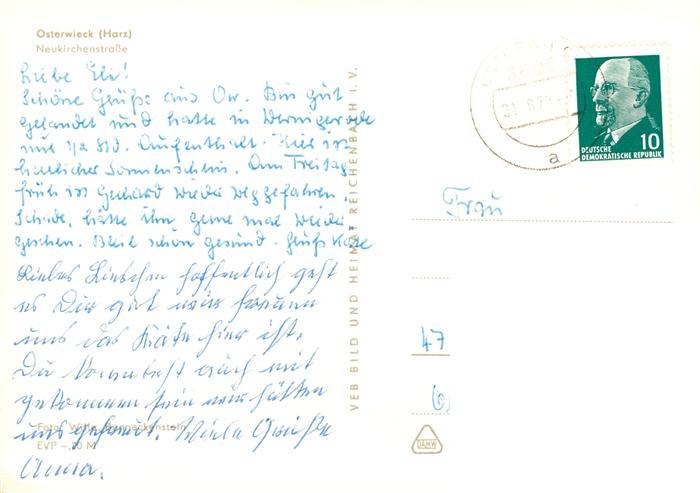 Osterwieck (Harz)
Neukirchenstraße
Liebe Eli!
Schöne Grüße aus Ow. Bin gut
gelandet und hatte in Wernigerode
nur 1/2 Std. Aufenthalt. Hier ist
herrlicher Sonnenschein. Am Freitag
früh ist Gerhard wieder weggefahren.
Schade, hätte ihn gerne mal wieder
gesehen. Bleib schön gesund. Gruß Käte
Liebes Lieschen hoffentlich geht
es Dir gut wir freuen
uns das Käte hier ist.
Du könntest auch mit
gekommen sein wir hätten
uns gefreut. Viele Grüße
Anna.
Foto: Witte, Benneckenstein
EVP -,20 M
VEB BILD UND HEIMAT REICHENBACH I. V.
31.8.7
a
10
DEUTSCHE
DEMOKRATISCHE REPUBLIK
Frau
47
DAHW